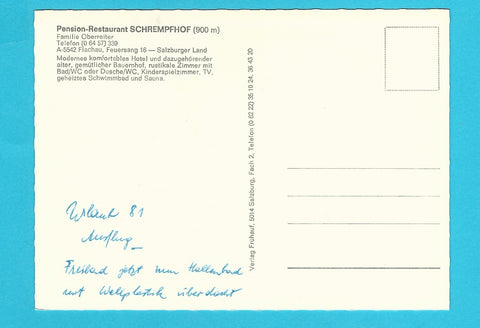 Pension-Restaurant SCHREMPFHOF (900 m)
Familie Oberreiter
Telefon (0 64 57) 339
A-5542 Flachau, Feuersang 16 — Salzburger Land
Modernes komfortables Hotel und dazugehörender
alter, gemütlicher Bauernhof, rustikale Zimmer mit
Bad/WC oder Dusche/WC, Kinderspielzimmer, TV,
geheiztes Schwimmbad und Sauna.
Verlag Frühauf, 5014 Salzburg, Fach 2, Telefon (0 62 22) 35 19 24, 36 43 20
Urlaub 81
Ausflug
Freibad jetzt zum Hallenbad
mit Wellplastik überdacht